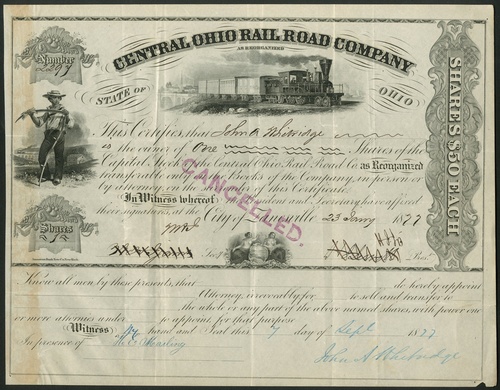 Number
97
CENTRAL OHIO RAIL ROAD COMPANY
AS REORGANIZED
STATE OF
OHIO
SHARES $50 EACH
This Certifies, that John A Whitridge
is the owner of One Shares of the
Capital Stock of the Central Ohio Rail Road Co. as Reorganized
transferable on the books of the Company, in person or
by attorney on the surrender of this Certificate.
In Witness whereof the President and Secretary have affixed
their signatures, at the City of Zanesville 23 Jany 1877
CANCELLED.
Shares
1
Sec.
Pres.
Know all men by these presents, that do hereby appoint
Attorney, irrevocably for to sell and transfer to
the whole or any part of the above named shares, with power one
or more attorneys under to appoint for that purpose
Witness my hand and Seal this 7 day of Sept 1877
In presence of
John A Whitridge